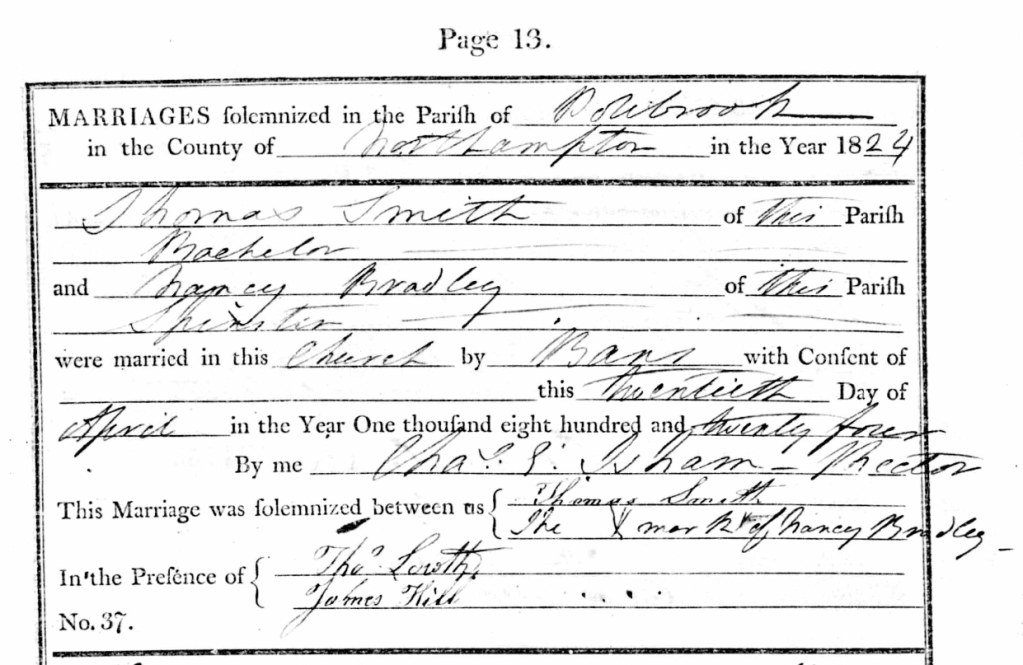 Page 13.
MARRIAGES ſolemnized in the Pariſh of Polebrook
in the County of Northampton in the Year 1824
Thomas Smith of this Pariſh
Bachelor
and Nancy Bradley of this Pariſh
Spinster
were married in this Church by Bans with Conſent of
this twentieth Day of
April in the Year One thouſand eight hundred and twenty four
By me Chas. E. Isham - Rector
This Marriage was ſolemnized between us { Thomas Smith
The X mark of Nancy Bradley -
In the Preſence of { Thos Lowth
James Hill
No. 37.